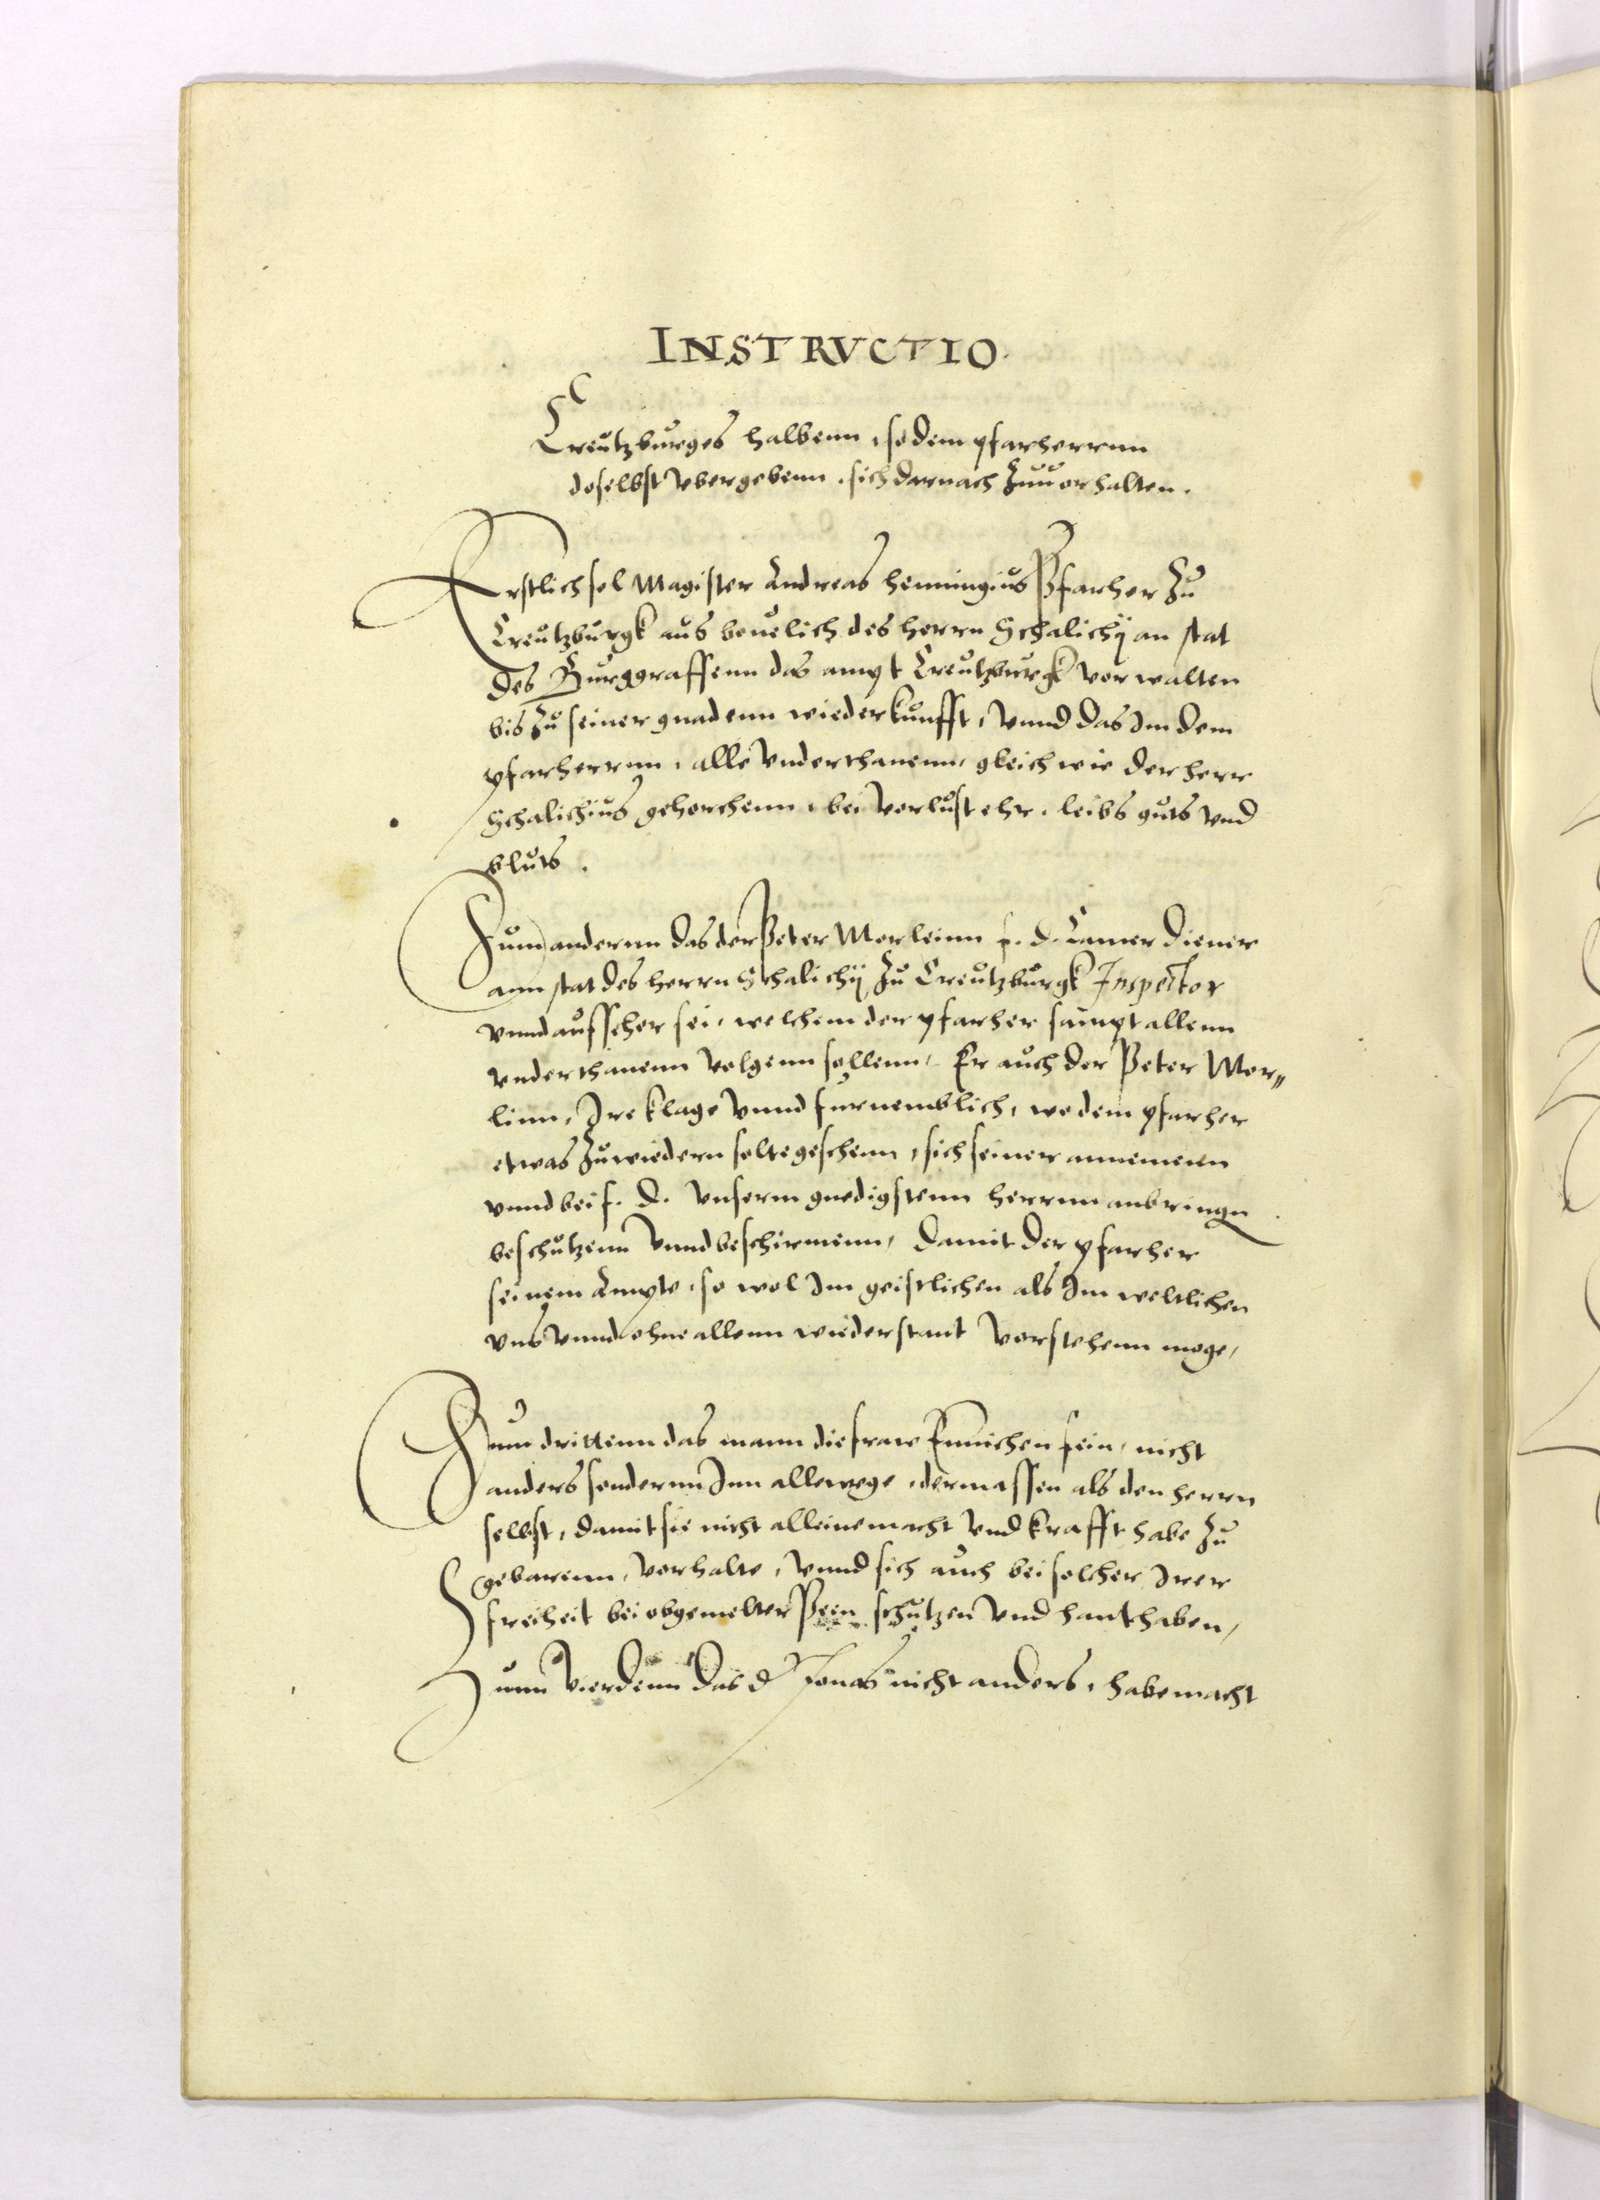 INSTRVCTIO.
Creutzburges halbenn, so dem pfarherrnn
doselbst vbergebenn, sich darnach Zuuorhalten.
Erstlich sol Magister Andreas Henningius Pfarher Zu
Creutzburgk aus beuelich des herrn Schalichij an stat
des Burggraffenn das ampt Creutzburgk vorwalten
bis Zu seiner gnadenn wiederkunfft, Vnnd das Im dem
pfarherrnn, alle Vnderthanenn, gleich wie der herr
Schalichius gehorchenn, bei Vorlust ehr, leibs guts Vnd
bluts.
Zum andernn das der Peter Morleinn f. d. Camer diener
ann stat des herrn Schalichij Zu Creutzburgk Inspector
vnnd aufseher sei, welchem der pfarher sampt allenn
vnderthanenn Volgenn sollenn, Er auch der Peter Mor„
linn, Ire klage Vnnd furnemblich, wo dem pfarher
etwas Zuwiedern solte geschenn, sich seiner annemenn
vnnd bei f. d. Vnserm gnedigstenn herrnn anbringn
beschutzenn Vnnd beschirmenn, damit der pfarher
seinem Ampte, so wol Im geistlichen als Im weltlichen
vns Vnnd ohne allenn wiederstant Vorstehenn moge,
Zum drittenn das mann die fraw nicht
anders sondernn Inn allewege, dermassen als den herrn
selbst, damit sie nicht alleine macht Vnd krafft habe Zu
gebarenn, Vorhalte, Vnnd sich auch bei solcher Irer
freiheit bei obgemelter Peen schutzen Vnd hanthaben,
Zum Vierdenn das d Jonas nicht anders, habe macht